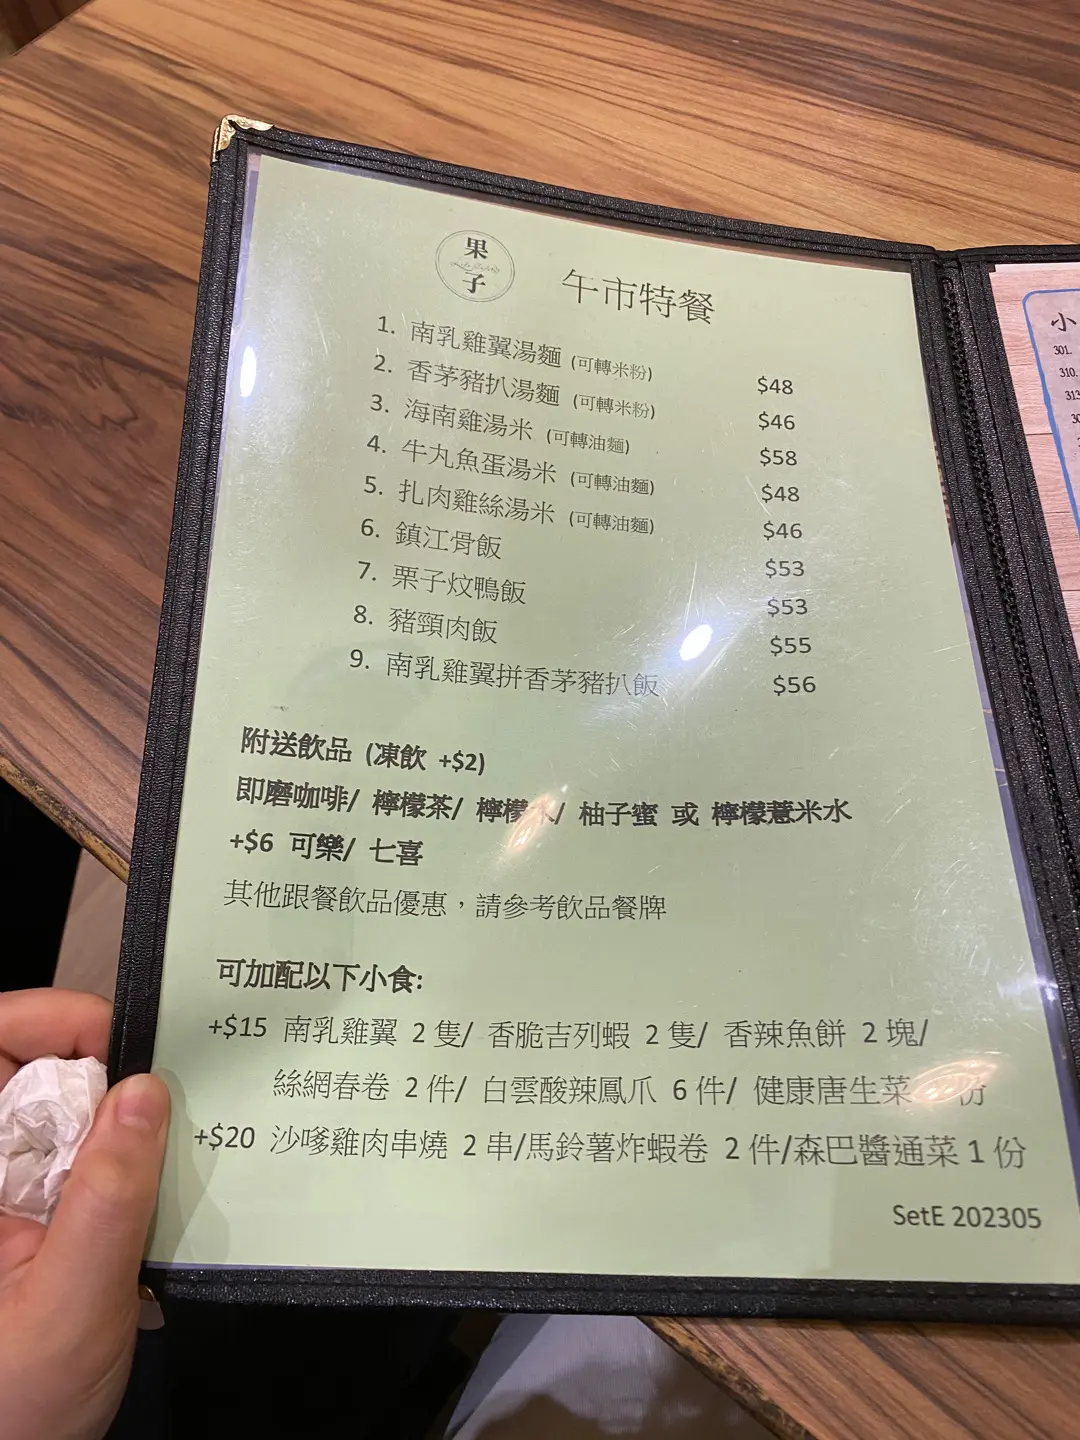 果
子
午市特餐
1. 南乳雞翼湯麵 (可轉米粉) $48
2. 香茅豬扒湯麵 (可轉米粉) $46
3. 海南雞湯米 (可轉油麵) $58
4. 牛丸魚蛋湯米 (可轉油麵) $48
5. 扎肉雞絲湯米 (可轉油麵) $46
6. 鎮江骨飯 $53
7. 栗子炆鴨飯 $53
8. 豬頸肉飯 $55
9. 南乳雞翼拼香茅豬扒飯 $56
附送飲品 (凍飲 +$2)
即磨咖啡/ 檸檬茶/ 檸檬水/ 柚子蜜 或 檸檬薏米水
+$6 可樂/ 七喜
其他跟餐飲品優惠，請參考飲品餐牌
可加配以下小食:
+$15 南乳雞翼 2 隻/ 香脆吉列蝦 2 隻/ 香辣魚餅 2 塊/
絲網春卷 2 件/ 白雲酸辣鳳爪 6 件/ 健康唐生菜 份
+$20 沙嗲雞肉串燒 2 串/馬鈴薯炸蝦卷 2 件/森巴醬通菜 1 份
SetE 202305
小
301.
310.
313